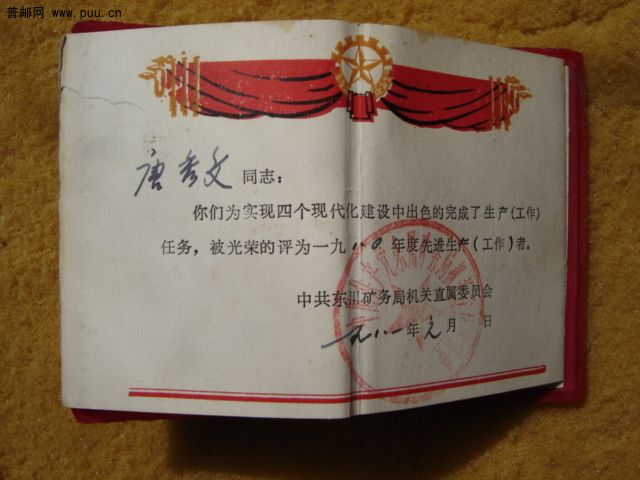 普邮网 www.puu.cn
唐秀文 同志:
你们为实现四个现代化建设中出色的完成了生产(工作)
任务,被光荣的评为一九八0年度先进生产(工作)者。
中共东川矿务局机关直属委员会
一九八一年元月 日